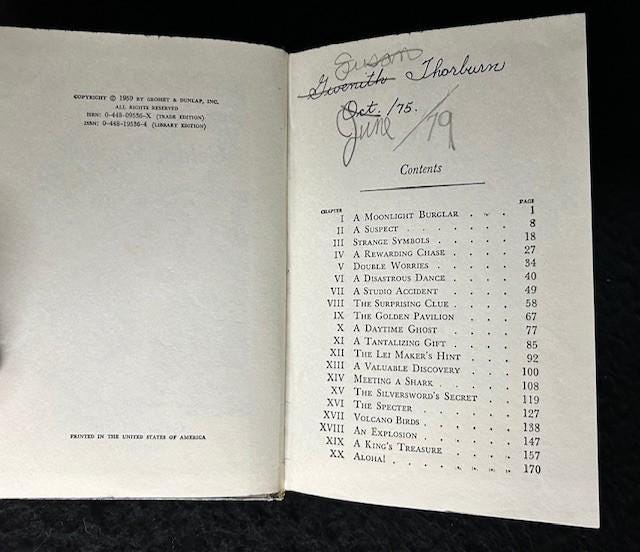 COPYRIGHT © 1959 BY GROSSET & DUNLAP, INC.
ALL RIGHTS RESERVED
ISBN: 0-448-09536-X (TRADE EDITION)
ISBN: 0-448-19536-4 (LIBRARY EDITION)
PRINTED IN THE UNITED STATES OF AMERICA
Susan
Gwenith Thorburn
Oct. /75.
June /79
Contents
CHAPTER PAGE
I A MOONLIGHT BURGLAR . . . . 1
II A SUSPECT . . . . . . . 8
III STRANGE SYMBOLS . . . . . 18
IV A REWARDING CHASE . . . . 27
V DOUBLE WORRIES . . . . . 34
VI A DISASTROUS DANCE . . . . 40
VII A STUDIO ACCIDENT . . . . 49
VIII THE SURPRISING CLUE . . . . 58
IX THE GOLDEN PAVILION . . . . 67
X A DAYTIME GHOST . . . . . 77
XI A TANTALIZING GIFT . . . . 85
XII THE LEI MAKER'S HINT . . . . 92
XIII A VALUABLE DISCOVERY . . . . 100
XIV MEETING A SHARK . . . . . 108
XV THE SILVERSWORD'S SECRET . . . 119
XVI THE SPECTER . . . . . . 127
XVII VOLCANO BIRDS . . . . . . 138
XVIII AN EXPLOSION . . . . . . 147
XIX A KING'S TREASURE . . . . . 157
XX ALOHA! . . . . . . . . 170